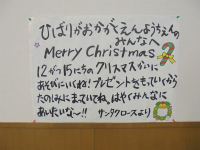 ひばりがおかがくえんようちえんの
みんなへ
Merry Christmas
12がつ15にちの クリスマスかいに
あそびにいくね! プレゼントをもっていくから
たのしみにまっていてね。はやくみんなに
あいたいな〜!!
サンタクロースより